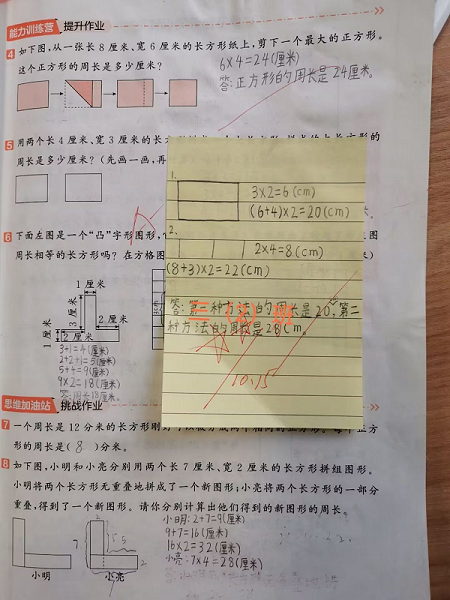 能力训练营 提升作业
4 如下图,从一张长8厘米、宽6厘米的长方形纸上,剪下一个最大的正方形。
这个正方形的周长是多少厘米?
6×4=24(厘米)
答:正方形的周长是24厘米。
5 用两个长4厘米、宽3厘米的长
长方形的
周长是多少厘米?(先画一画,再
1.
3×2=6(cm)
(6+4)×2=20(cm)
2.
2×4=8(cm)
(8+3)×2=22(cm)
答:第一种方法的周长是20,第二
种方法的周长是28cm。
三 班
10.15
6 下面左图是一个“凸”字形图形,
周长相等的长方形吗?在方格图
1厘米
3厘米
1厘米
2厘米
2厘米
3+1=4(厘米)
2+2+1=5(厘米)
5+4=9(厘米)
9×2=18(厘米)
答:周长18厘米。
思维加油站 挑战作业
7 一个周长是12分米的长方形刚好可以
形的周长是(8)分米。
8 如下图,小明和小亮分别用两个长7厘米、宽2厘米的长方形拼组图形。
小明将两个长方形无重叠地拼成了一个新图形;小亮将两个长方形的一部分
重叠,得到了一个新图形。请你分别计算出他们得到的新图形的周长。
小明:2+7=9(厘米)
9+7=16(厘米)
16×2=32(厘米)
小亮:7×4=28(厘米)
7
5
5
2
小明
小亮